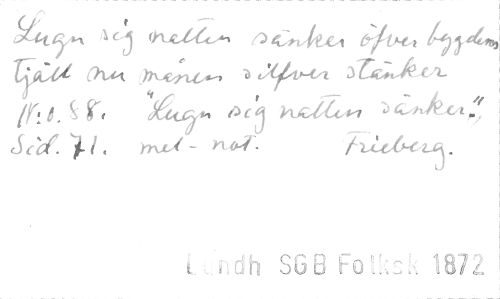 Lugn sig natten sänker öfver bygdens
tjäll nu månen silfver stänker
N:o. 88. "Lugn sig natten sänker.",
Sid. 71. mel-not. Frieberg.
Lundh SGB Folksk 1872